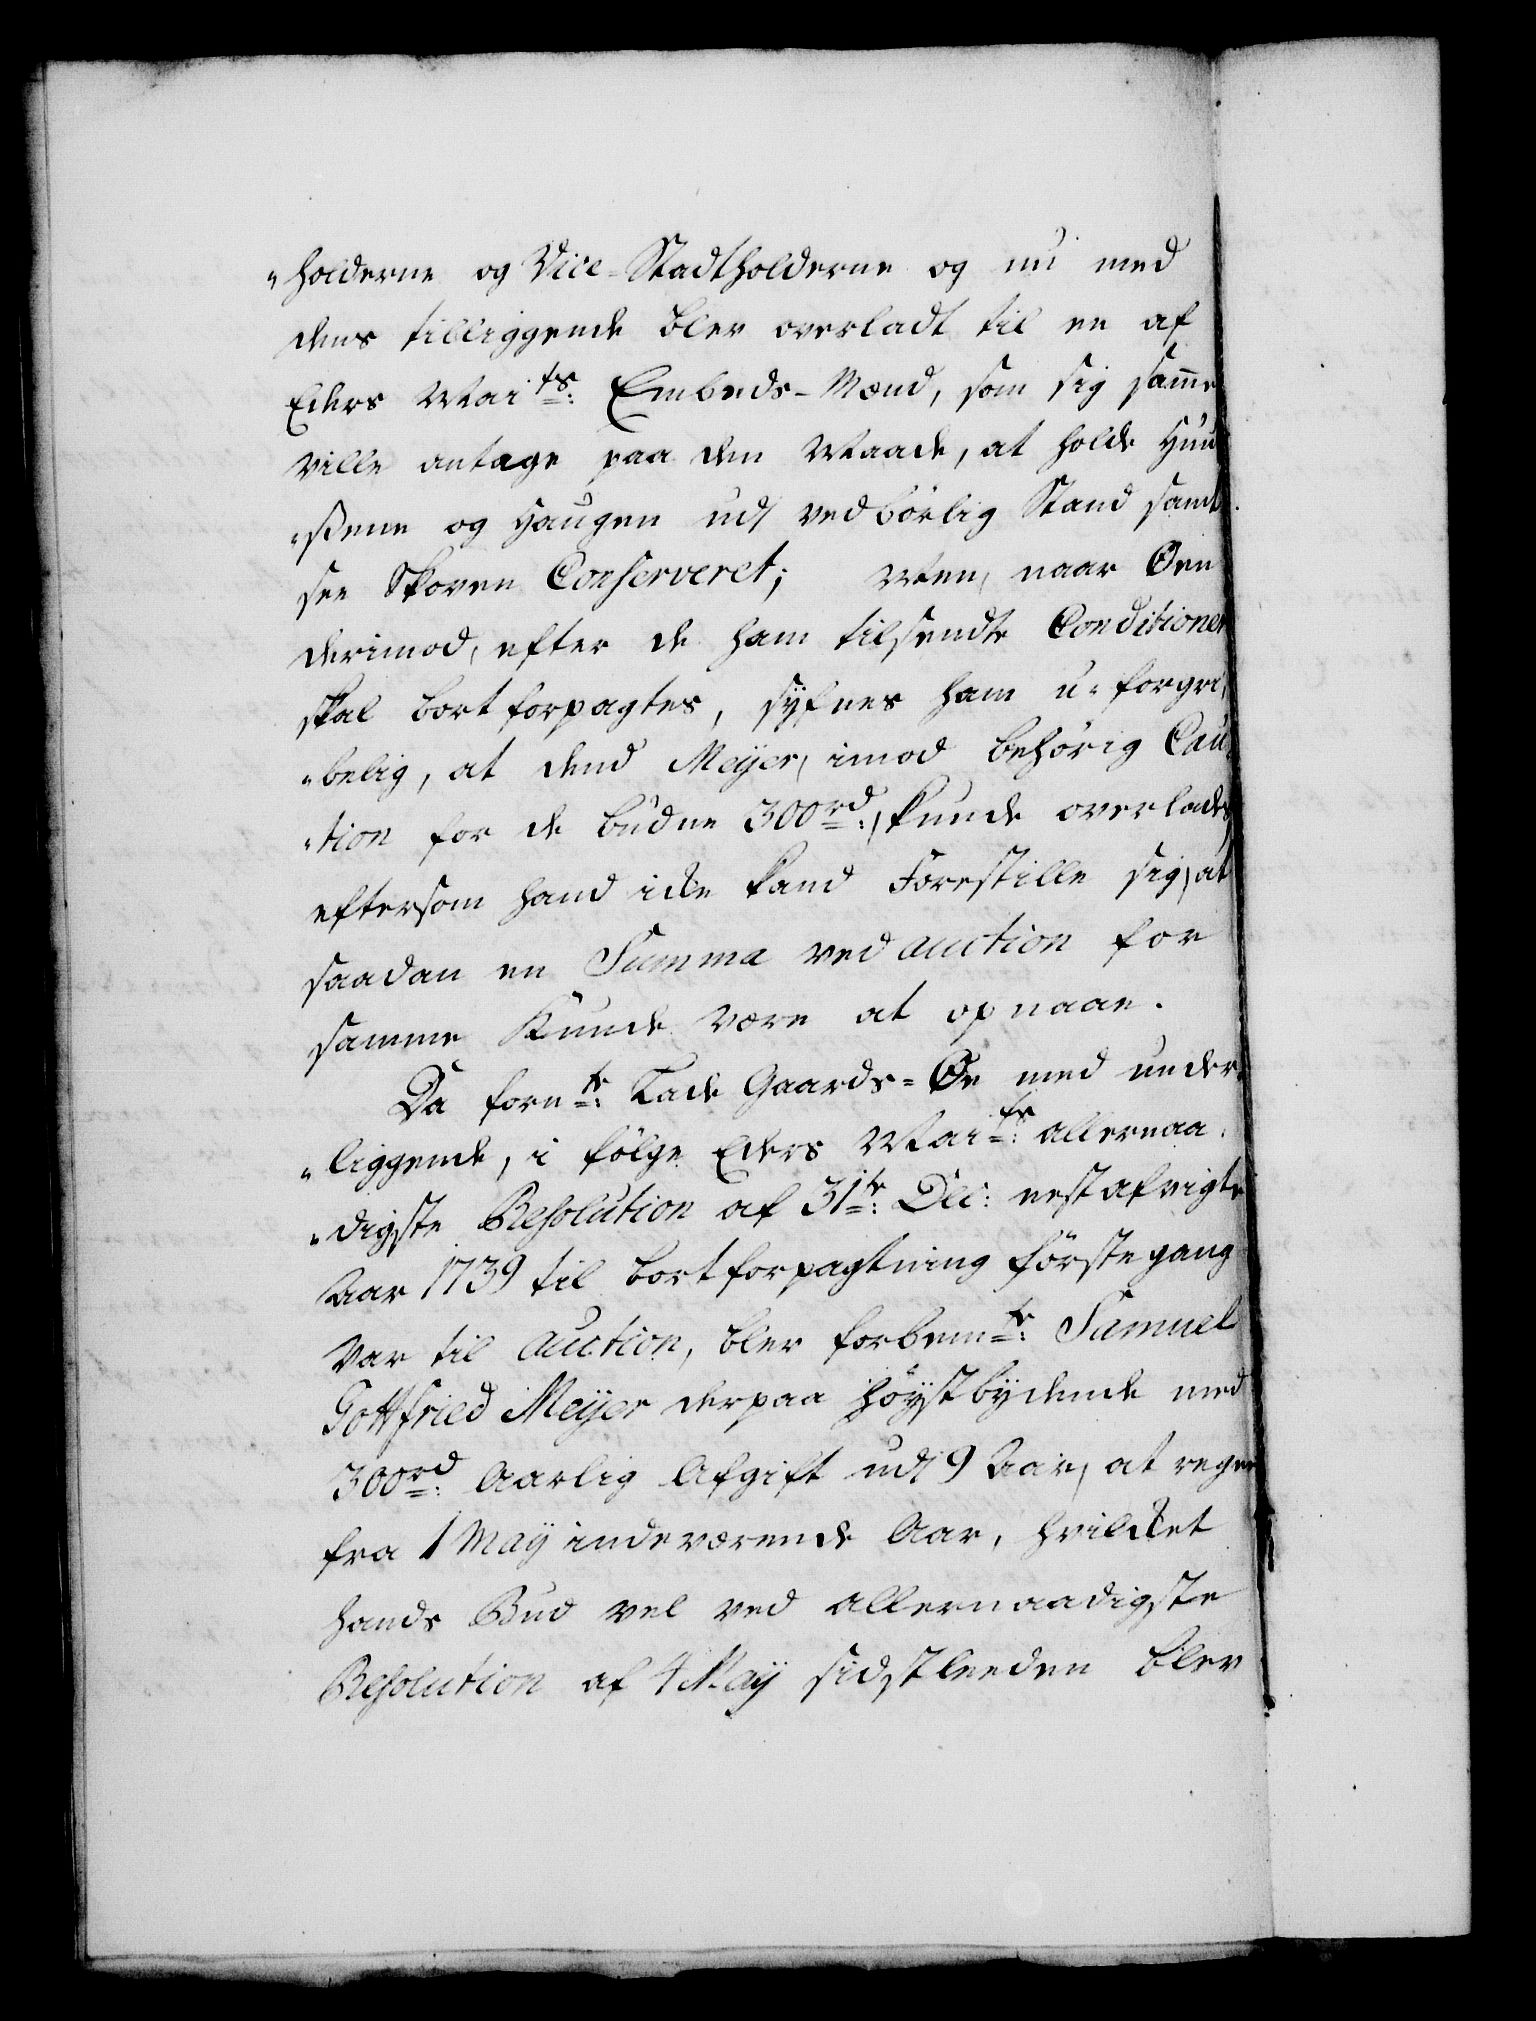 "holderne og Vice-Stadtholderne og nu med
dens tilliggende blev overladt til en af
Eders Maits: Embeds-Mænd, som sig samme
ville antage paa den Maade, at holde Huu
"ssene og Haugen udj vedbörlig Stand samt
see Skoven Conserveret; Men, naar Öen
derimod, efter de ham tilsendte Conditioner
skal bortforpagtes, syfnes ham u-forgri,
"belig, at dend Meÿer, imod behörig Cau
"tion for de budne 300rd:, kunde overlades,
eftersom hand icke kand Forestille sig, at
saadan en Summa ved auction for
samme Kunde være at opnaae.
Da fornte: Lade Gaards-Øe med under
"liggende, i fölge Eders Maits: allernaa,
"digste Resolution af 31te: Dec: nestafvigte
Aar 1739 til bortforpagtning förstegang
var til auction, blev forbemte: Samuel
Gottfried Meÿer derpaa höÿstbÿdende med
300rd: Aarlig Afgift udj 9 Aar, at regne
fra 1 Maÿ indeværende Aar, hvilcket
hands Bud vel ved allernaadigste
Resolution af 4 Maÿ sidstleeden blev